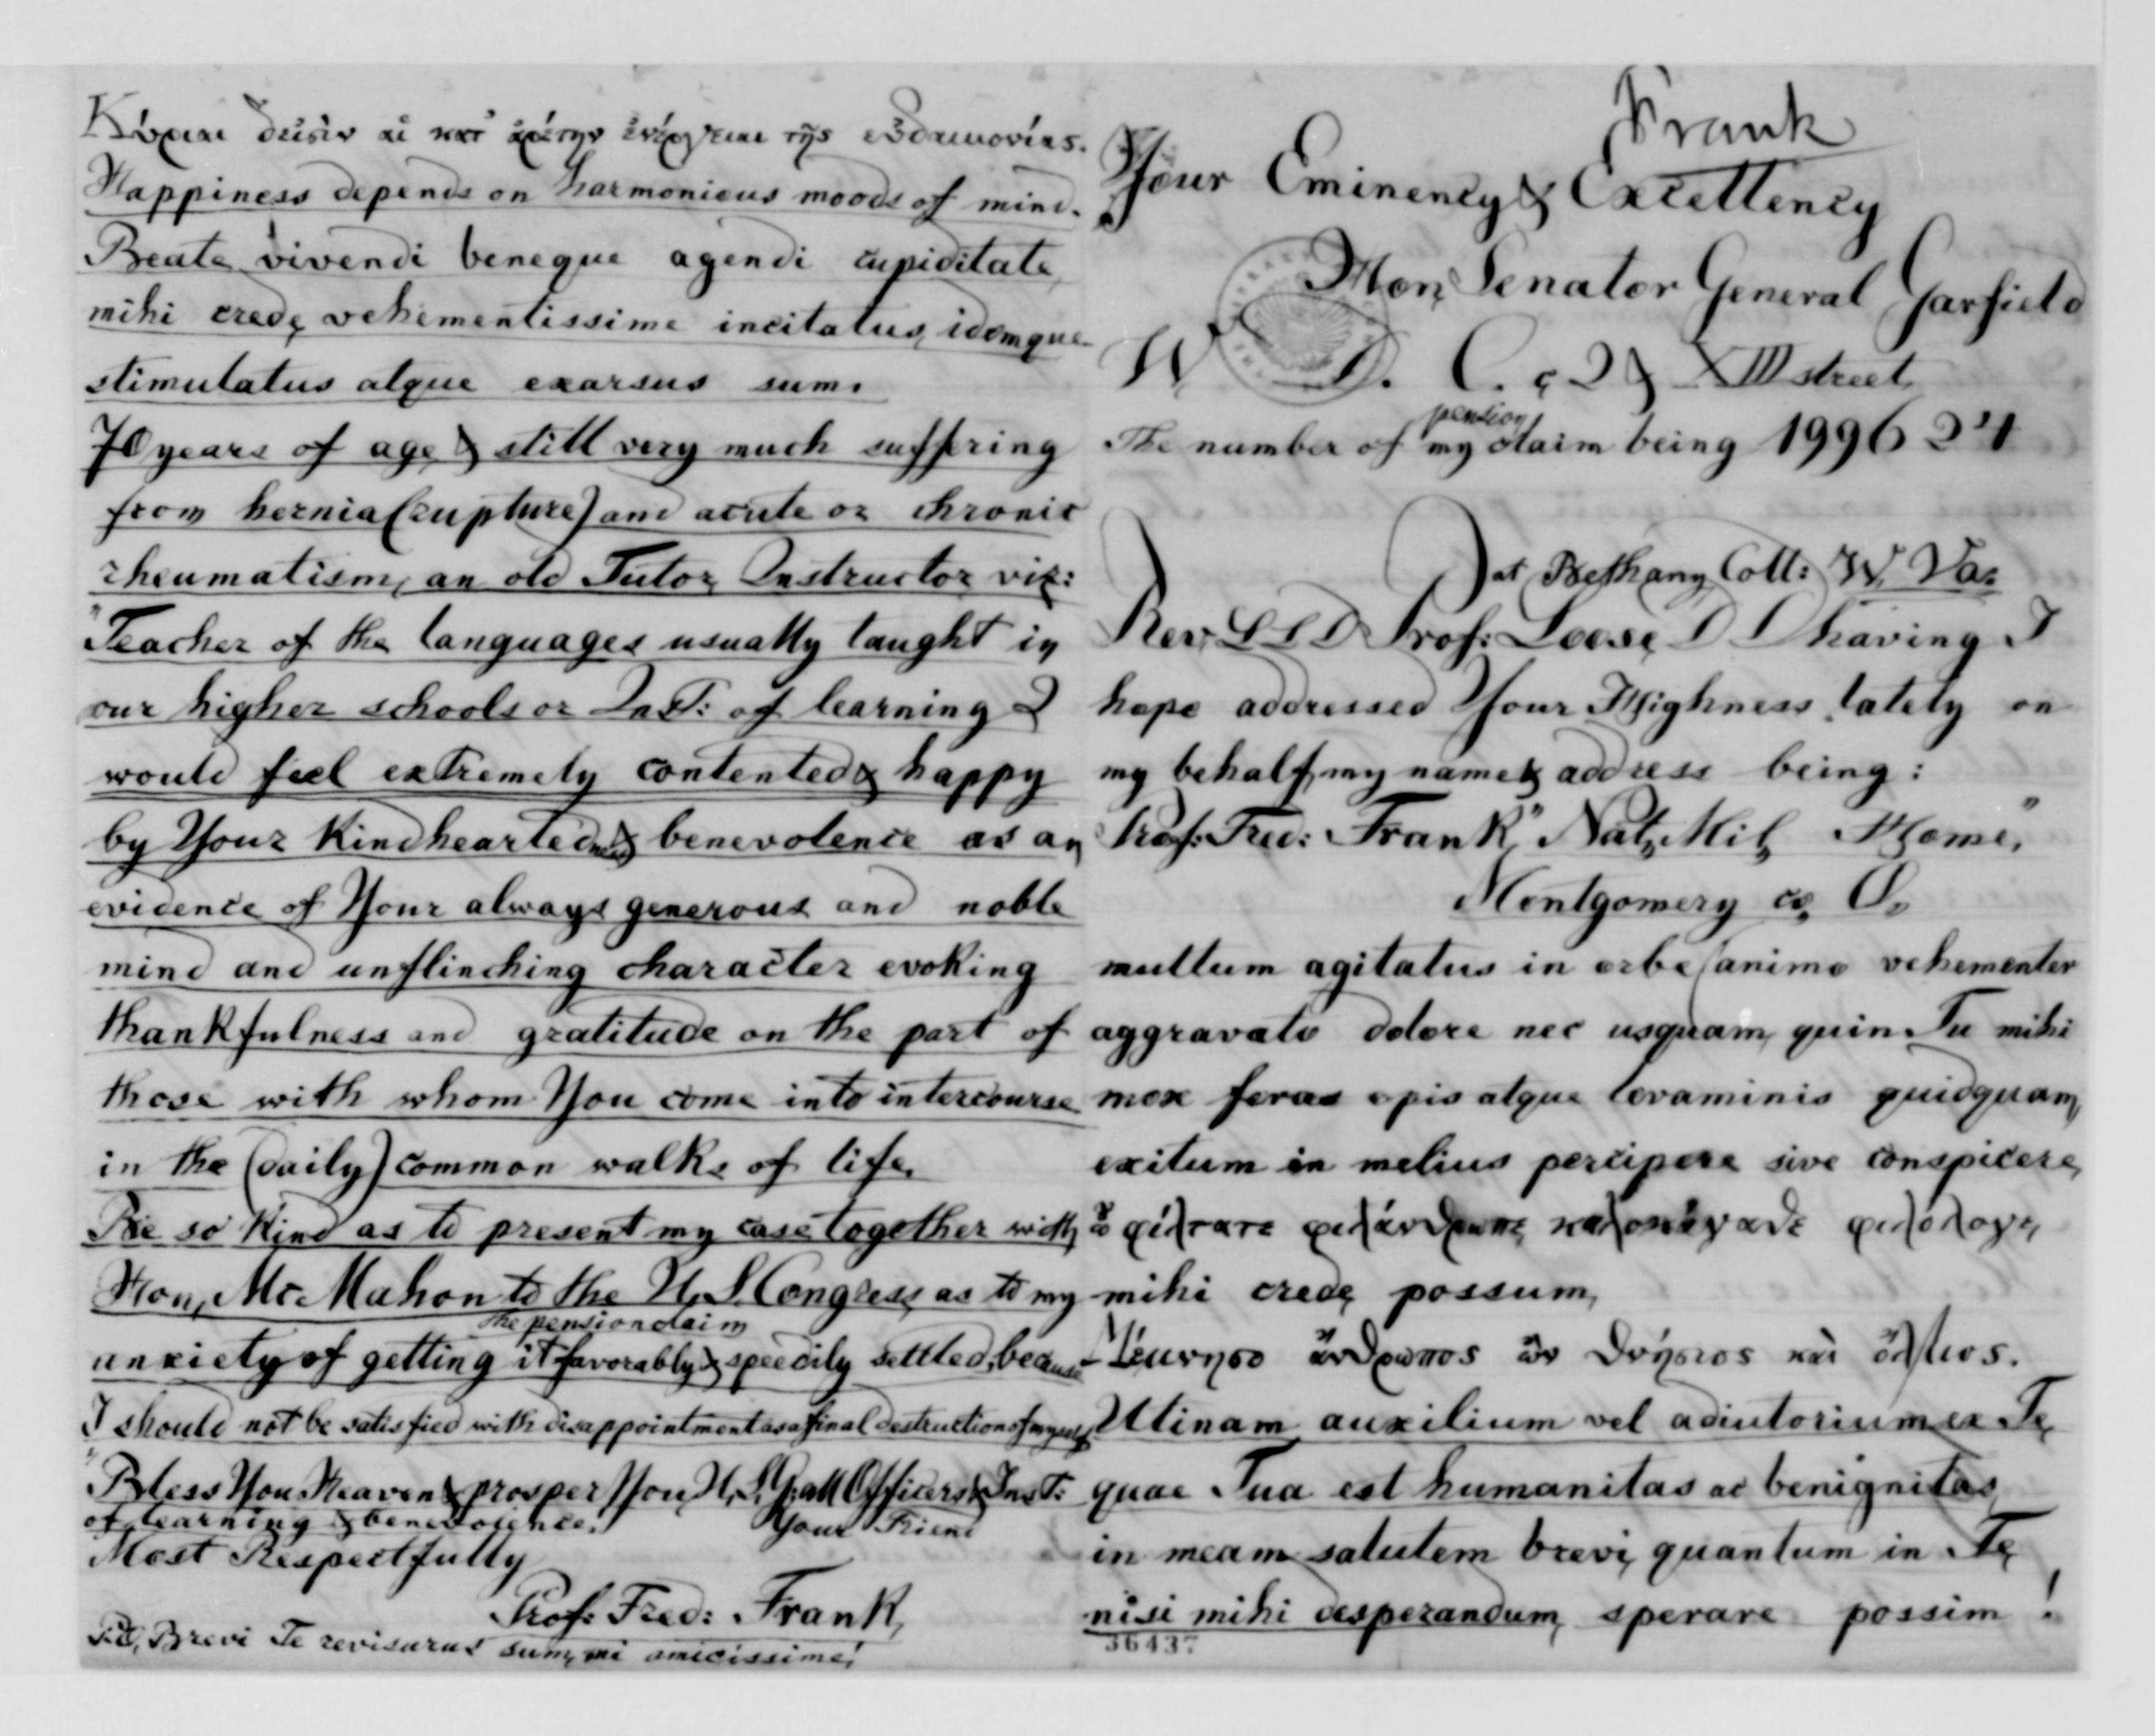 Frank
Your Eminency & Excellency
Hon, Senator General Garfield
W. D. C. XIII street,
pension
The number of my claim being 199624
at Bethany Coll: W, Va:
Rev, LLD Prof: Loose, D D having I
hope addressed Your Highness lately on
my behalf, my name & address being:
Prof: Fred: Frank, "Nat, Mil, Home,"
Montgomery co, O.
multum agitatus in orbe (animo vehementer
aggravato dolore nec usquam, quin Tu mihi
mox feras opis atque levaminis quidquam,
exitum in melius percipere sive conspicere,
ὦ φίλτατε φιλάνθρωπε, καλοκάγαθε φιλόλογε,
mihi crede, possum,
Μέμνησο ἄνθρωπος ὢν θνήσιος καὶ ὄλβιος.
Utinam auxilium vel adiutorium ex Te,
quae Tua est humanitas ac benignitas
in meam salutem brevi, quantum in Te,
nisi mihi desperandum, sperare possim!
36437
Κύριαι δ'εἰσὶν αἱ κατ' ἀρέτην ἐνέργειαι τῆς εὐδαιμονίας.
Happiness depends on harmonious moods of mind.
Beate vivendi beneque agendi cupiditate,
mihi crede, vehementissime incitatus, idemque
stimulatus atque exarsus sum.
70 years of age, & still very much suffering
from hernia (rupture) and acute or chronic
rheumatism, an old Tutor, Instructor viz:
"Teacher of the languages usually taught in
our higher schools or Inst: of learning I
would feel extremely contented & happy
by Your Kindheartedness & benevolence as an
evidence of Your always generous and noble
mind and unflinching character evoking
thankfulness and gratitude on the part of
those with whom You come into intercourse
in the (daily) common walks of life.
Be so Kind as to present my case together with
Hon, Mc Mahon to the U, S. Congress, as to my
the pension claim
anxiety of getting it favorably & speedily settled, because
I should not be satisfied with disappointment as a final destruction of myself,
"Bless You Heaven & prosper You, U, S, Officers & Inst:
of learning & benevolence.
Your Friend
Most Respectfully
Prof: Fred: Frank,
P.S, Brevi Te revisurus sum, mi amicissime!